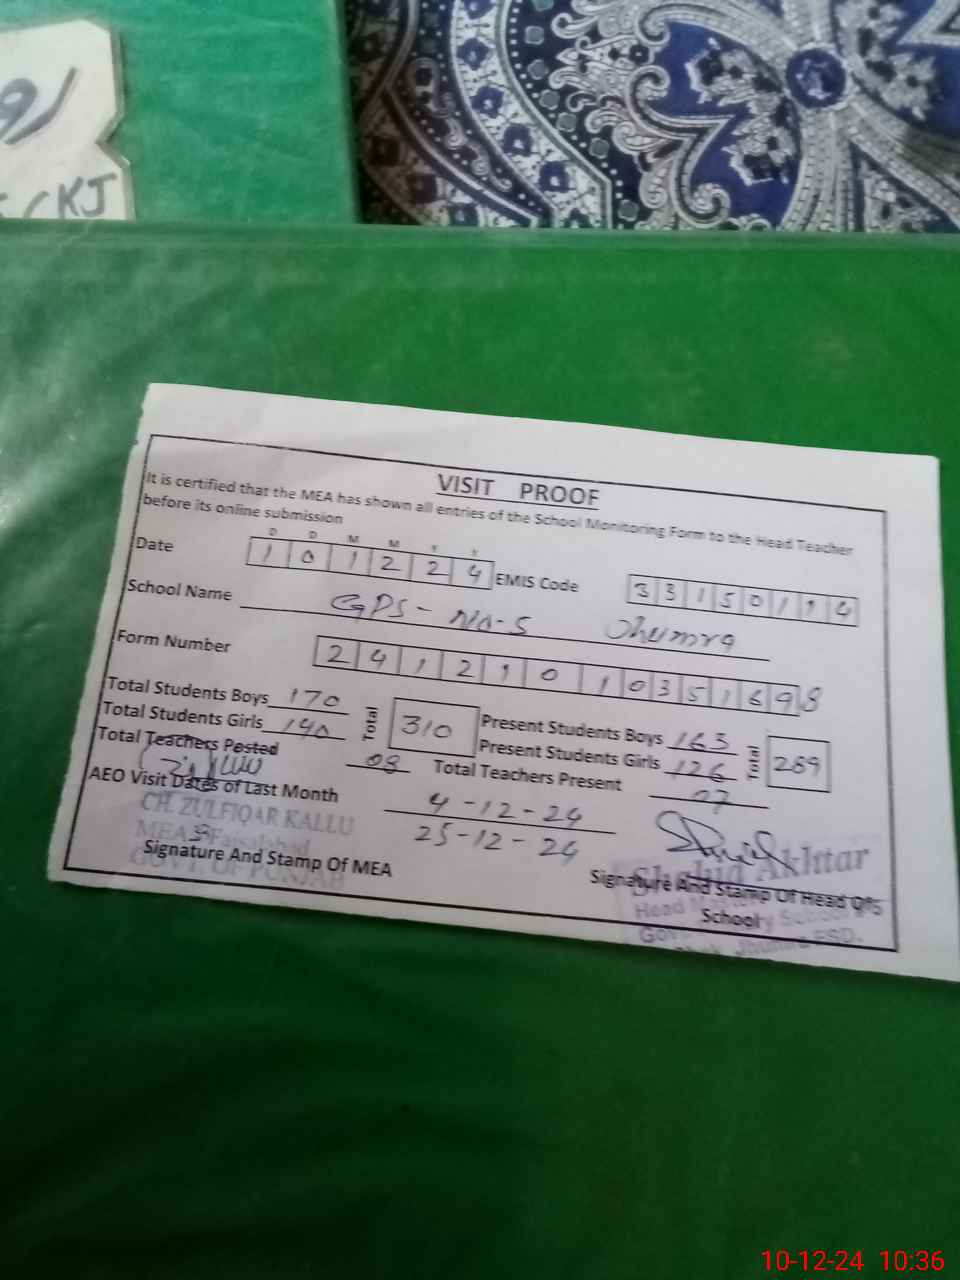 CKJ
VISIT PROOF
It is certified that the MEA has shown all entries of the School Monitoring Form to the Head Teacher
before its online submission
D D M M Y Y
Date 1 0 1 2 2 4 EMIS Code 3 3 1 5 0 1 1 4
School Name GPS - Jhumra
Form Number 2 4 1 2 1 0 1 0 3 5 1 6 9 8
Total Students Boys 170 Total 310 Present Students Boys 163 Total 289
Total Students Girls 140 Present Students Girls 126
Total Teachers Posted 08 Total Teachers Present 07
AEO Visit Dates of Last Month 4-12-24
25-12-24
CH. ZULFIQAR KALLU
MEA 39 Faisalabad
GOVT. OF PUNJAB
Signature And Stamp Of MEA
Shahid Akhtar
Signature And Stamp Of Head OPS
School
Head
Jhumra FSD.
10-12-24 10:36